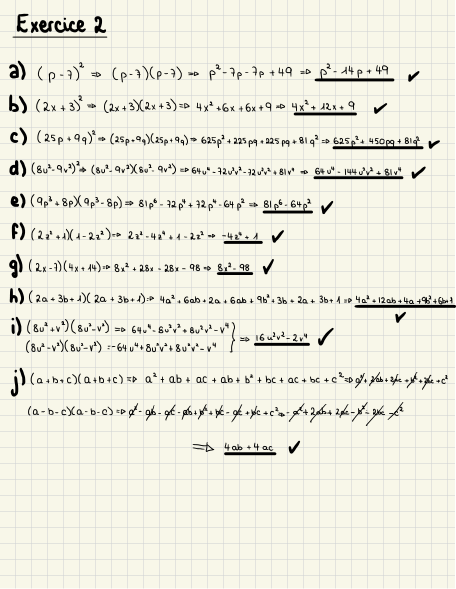 Exercice 2
a) (p-7)² => (p-7)(p-7) => p²-7p-7p+49 => p²-14p+49 ✓
b) (2x+3)² => (2x+3)(2x+3) => 4x²+6x+6x+9 => 4x²+12x+9 ✓
c) (25p+9q)² => (25p+9q)(25p+9q) => 625p²+225pq+225pq+81q² => 625p²+450pq+81q² ✓
d) (8u²-9v²)² => (8u²-9v²)(8u²-9v²) => 64u⁴-72u²v²-72u²v²+81v⁴ => 64u⁴-144u²v²+81v⁴ ✓
e) (9p³+8p)(9p³-8p) => 81p⁶-72p⁴+72p⁴-64p² => 81p⁶-64p² ✓
f) (2z²+1)(1-2z²) => 2z²-4z⁴+1-2z² => -4z⁴+1 ✓
g) (2x-7)(4x+14) => 8x²+28x-28x-98 => 8x²-98 ✓
h) (2a+3b+1)(2a+3b+1) => 4a²+6ab+2a+6ab+9b²+3b+2a+3b+1 => 4a²+12ab+4a+9b²+6b+1 ✓
i) (8u²+v²)(8u²-v²) => 64u⁴-8u²v²+8u²v²-v⁴
(8u²-v²)(8u²-v²) => -64u⁴+8u²v²+8u²v²-v⁴ } => 16u²v²-2v⁴ ✓
j) (a+b+c)(a+b+c) => a²+ab+ac+ab+b²+bc+ac+bc+c² => a²+2ab+2ac+b²+2bc+c²
(a-b-c)(a-b-c) => a²-ab-ac-ab+b²+bc-ac+bc+c² => -a²+2ab+2ac-b²-2bc-c²
=> 4ab+4ac ✓